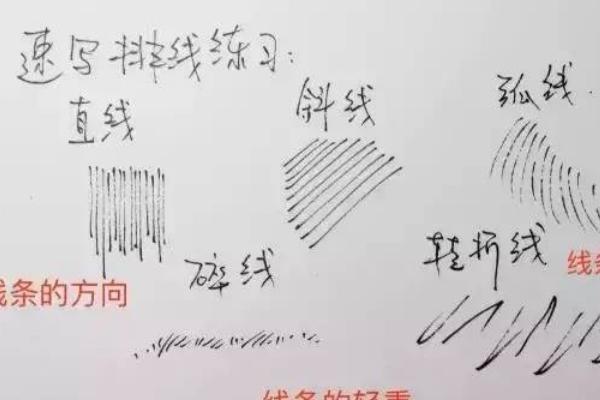 速写排线练习:
直线
斜线
弧线.
碎线
转折线
线条
线条的方向
线条的轻重